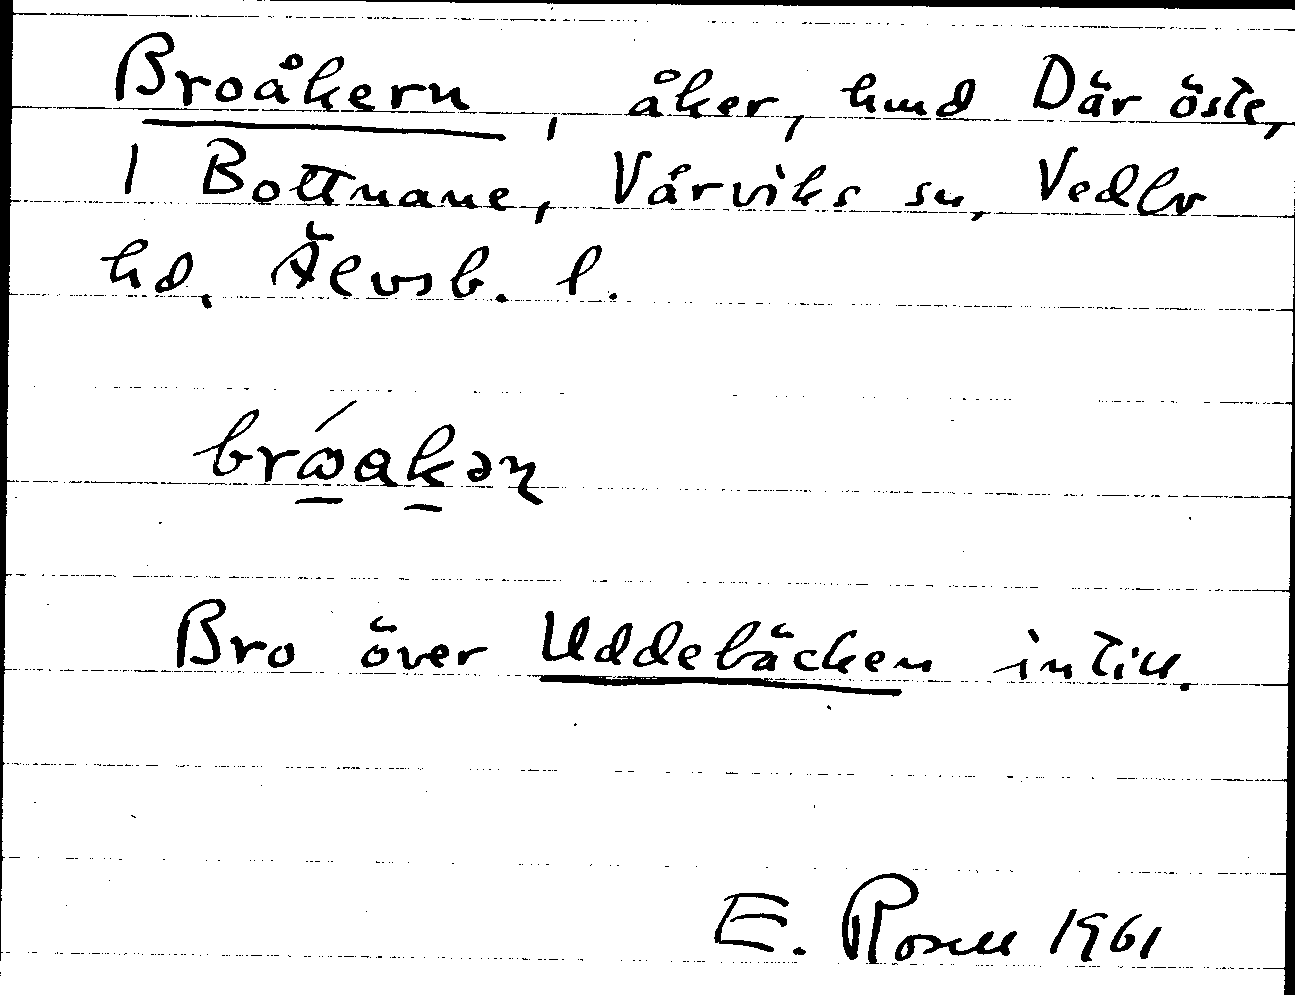 Broåkern, åker, hmd Där öste,
1 Bottnane, Vårviks sn, Vedbo
hd. Älvsb. l.
brώɑkəɳ
Bro över Uddebäcken intill.
E. Rosell 1961